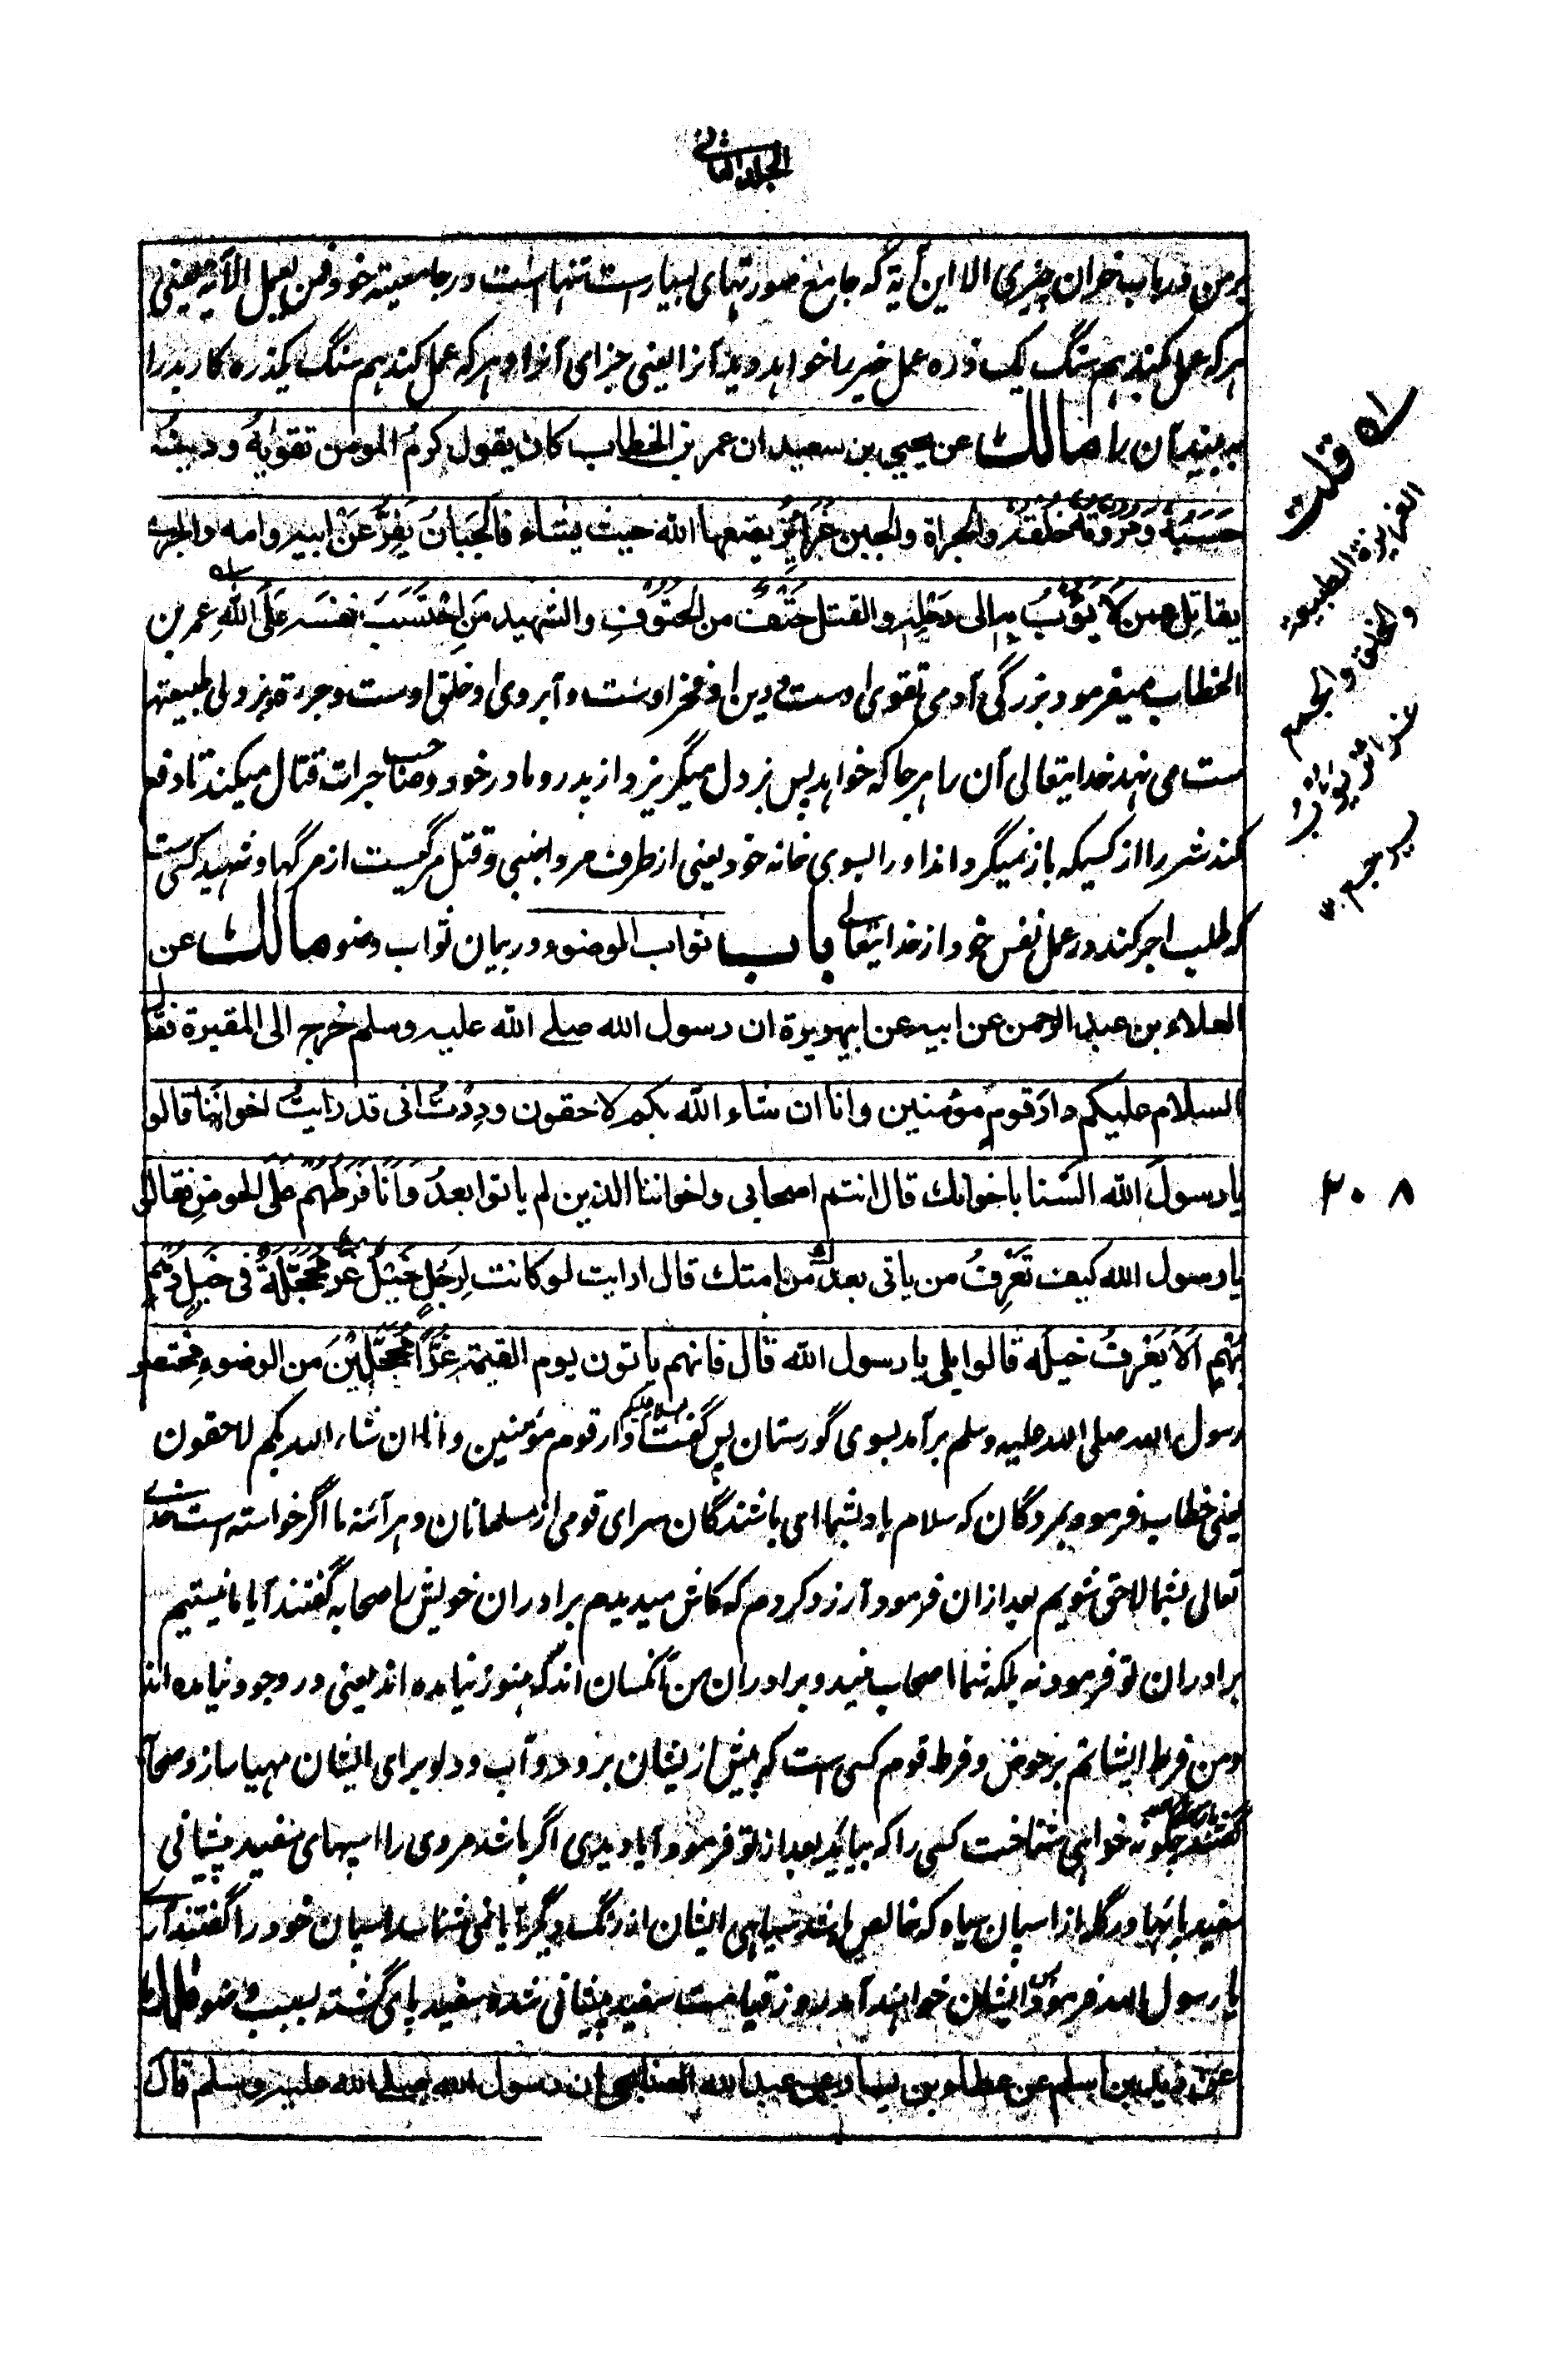 الجلد الثانی
بر من درباب خران چیزی الا این آیة که جامع صورتهای بسیارست تنها است در جامعیته خود فمن یعمل الآیه یعنی
هرکه عمل کند هم سنگ یک ذره عمل خیر را خواهد دید آنرا یعنی جزای آنرا و هرکه عمل کند هم سنگ یکذره کار بد را
به بیند آن را مالك عن یحیی بن سعید ان عمر بن الخطاب کان یقول کرمُ المومن تقویٰهُ و دینُه
حَسَبُهُ وَ مُرُوَّتُهُ خُلُقُه والجراة والجبن غَرَائِزُ یضعها الله حیث یشاء فالجَبَانُ یَفِرُّ عَنْ ابیه وامه والجرئ
یقاتِل عمن لَا یَؤُبُ به الی رَحْلِه والقتل حَتْفٌ من الحُتُوْفِ والشهید مَنِ احْتَسَبَ نفسَه عَلَی اللهِ عمر بن
الخطاب میفرمود بزرگی آدمی تقوی اوست و دین او فخر اوست و آبروی او خلق اوست و جرءة و بزدلی طبیعتها
ست می نهد خدایتعالی آن را هر جا که خواهد پس بزدل میگریزد از پدر و مادر خود و صاحب جرات قتال میکند تا دفع
کند شر را از کسیکه باز نمیگرداند او را بسوی خانه خود یعنی از طرف مرد اجنبی و قتل مرگیست از مرگها و شهید کسی ست
که طلب اجر کند در عمل نفس خود از خدایتعالی باب ثواب الوضوء در بیان ثواب وضو مالك عن
العلاء بن عبد الرحمن عن ابیه عن ابیهریرة ان رسول الله صلے الله علیه وسلم خرج الی المقبرة فقال
السلام علیکم دارَ قومٍ مؤمنین وانا ان شاء الله بکم لاحقون وددتُ انی قد رایتُ اخواننا قالوا
یا رسولَ الله السْنا باخوانك قال انتم اصحابی واخواننا الذین لم یاتوا بعدُ وَ اَنَا فَرَطُهُم علی الحوضِ فقالوا
یا رسول الله کیف تَعْرِفُ من یاتی بعدك من امتك قال ارایت لو کانت لِرَجُلٍ خَیْلٌ غُرٌّ مُحَجَّلَةٌ فی خَیْلٍ دُهْمٍ
بُهْمٍ اَلَا یَعْرِفُ خیلَه قالوا بلی یا رسول الله قال فانهم یاتون یوم القیمة غُرًّا مُحَجَّلِیْنَ من الوضوءِ
رسول الله صلی الله علیه وسلم برآمد بسوی گورستان پس گفت السلام علیکم دار قوم مؤمنین وانا ان شاء الله بکم لاحقون
یعنی خطاب فرمود بمردگان که سلام باد بشما ای باشندگان سرای قومی از مسلمانان و هر آئنه ما اگر خواسته است خدای
تعالی بشما لاحق شویم بعد از ان فرمود آرزو کردم که کاش میدیدم برادران خویش را صحابه گفتند آیا ما نیستیم
برادران تو فرمود نه بلکه شما اصحاب منید و برادران من آنکسان اند که هنوز نیامده اند یعنی در وجود نیامده اند
و من فرط ایشانم بر حوض و فرط قوم کسی است که پیش از ایشان برود و آب و دلو برای ایشان مهیا سازد صحابه
گفتند چگونه خواهی شناخت کسی را که بیاید بعد از تو فرمود آیا دیدی اگر باشد مردی را اسپهای سفید پیشانی
سفید پا در گله از اسپان سیاه که خالص باشد سیاهی ایشان از رنگ دیگر آیا نمی شناسد اسپان خود را گفتند آری
یا رسول الله فرمود پس ایشان خواهند آمد روز قیامت سفید پیشانی شده سفید پای گشته بسبب وضو مالك
عن زید بن اسلم عن عطاء بن یسار عن عبد الله الصنابحی ان رسول الله صلے الله علیه وسلم قال
له قلت
الغریزة الطبیعة
والخلق والجمع
غرائز
۳۰۸